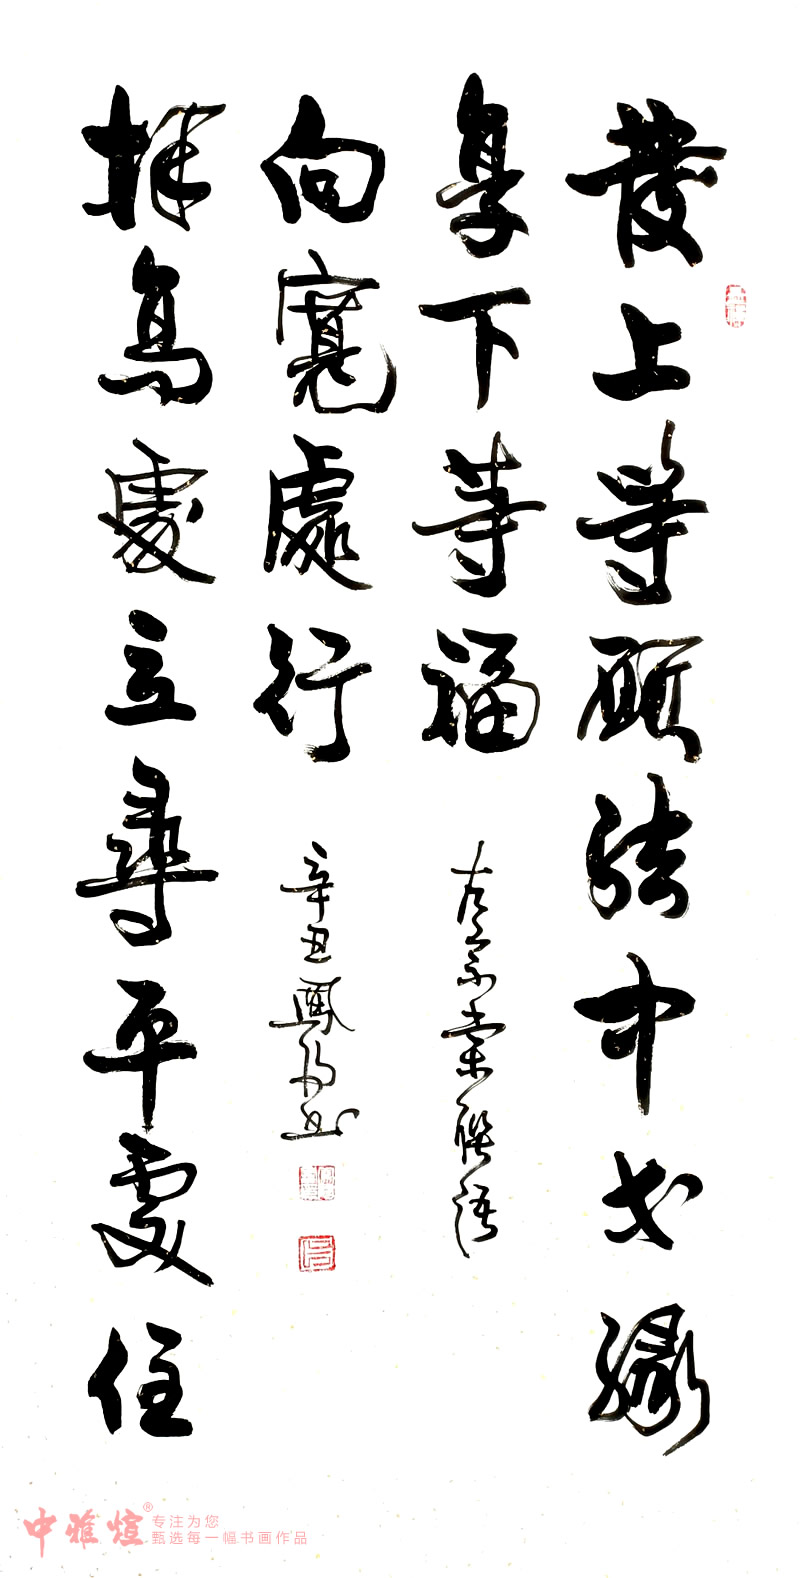 發上等願結中等緣
享下等福
左宗棠聯語
擇高處立尋平處住
向寬處行
辛丑鳳書
中雅煊®
专注为您
甄选每一幅书画作品